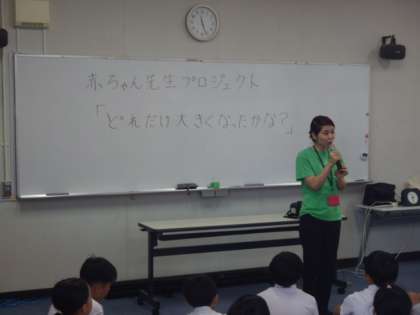 赤ちゃん先生プロジェクト
「どれだけ大きくなったかな？」